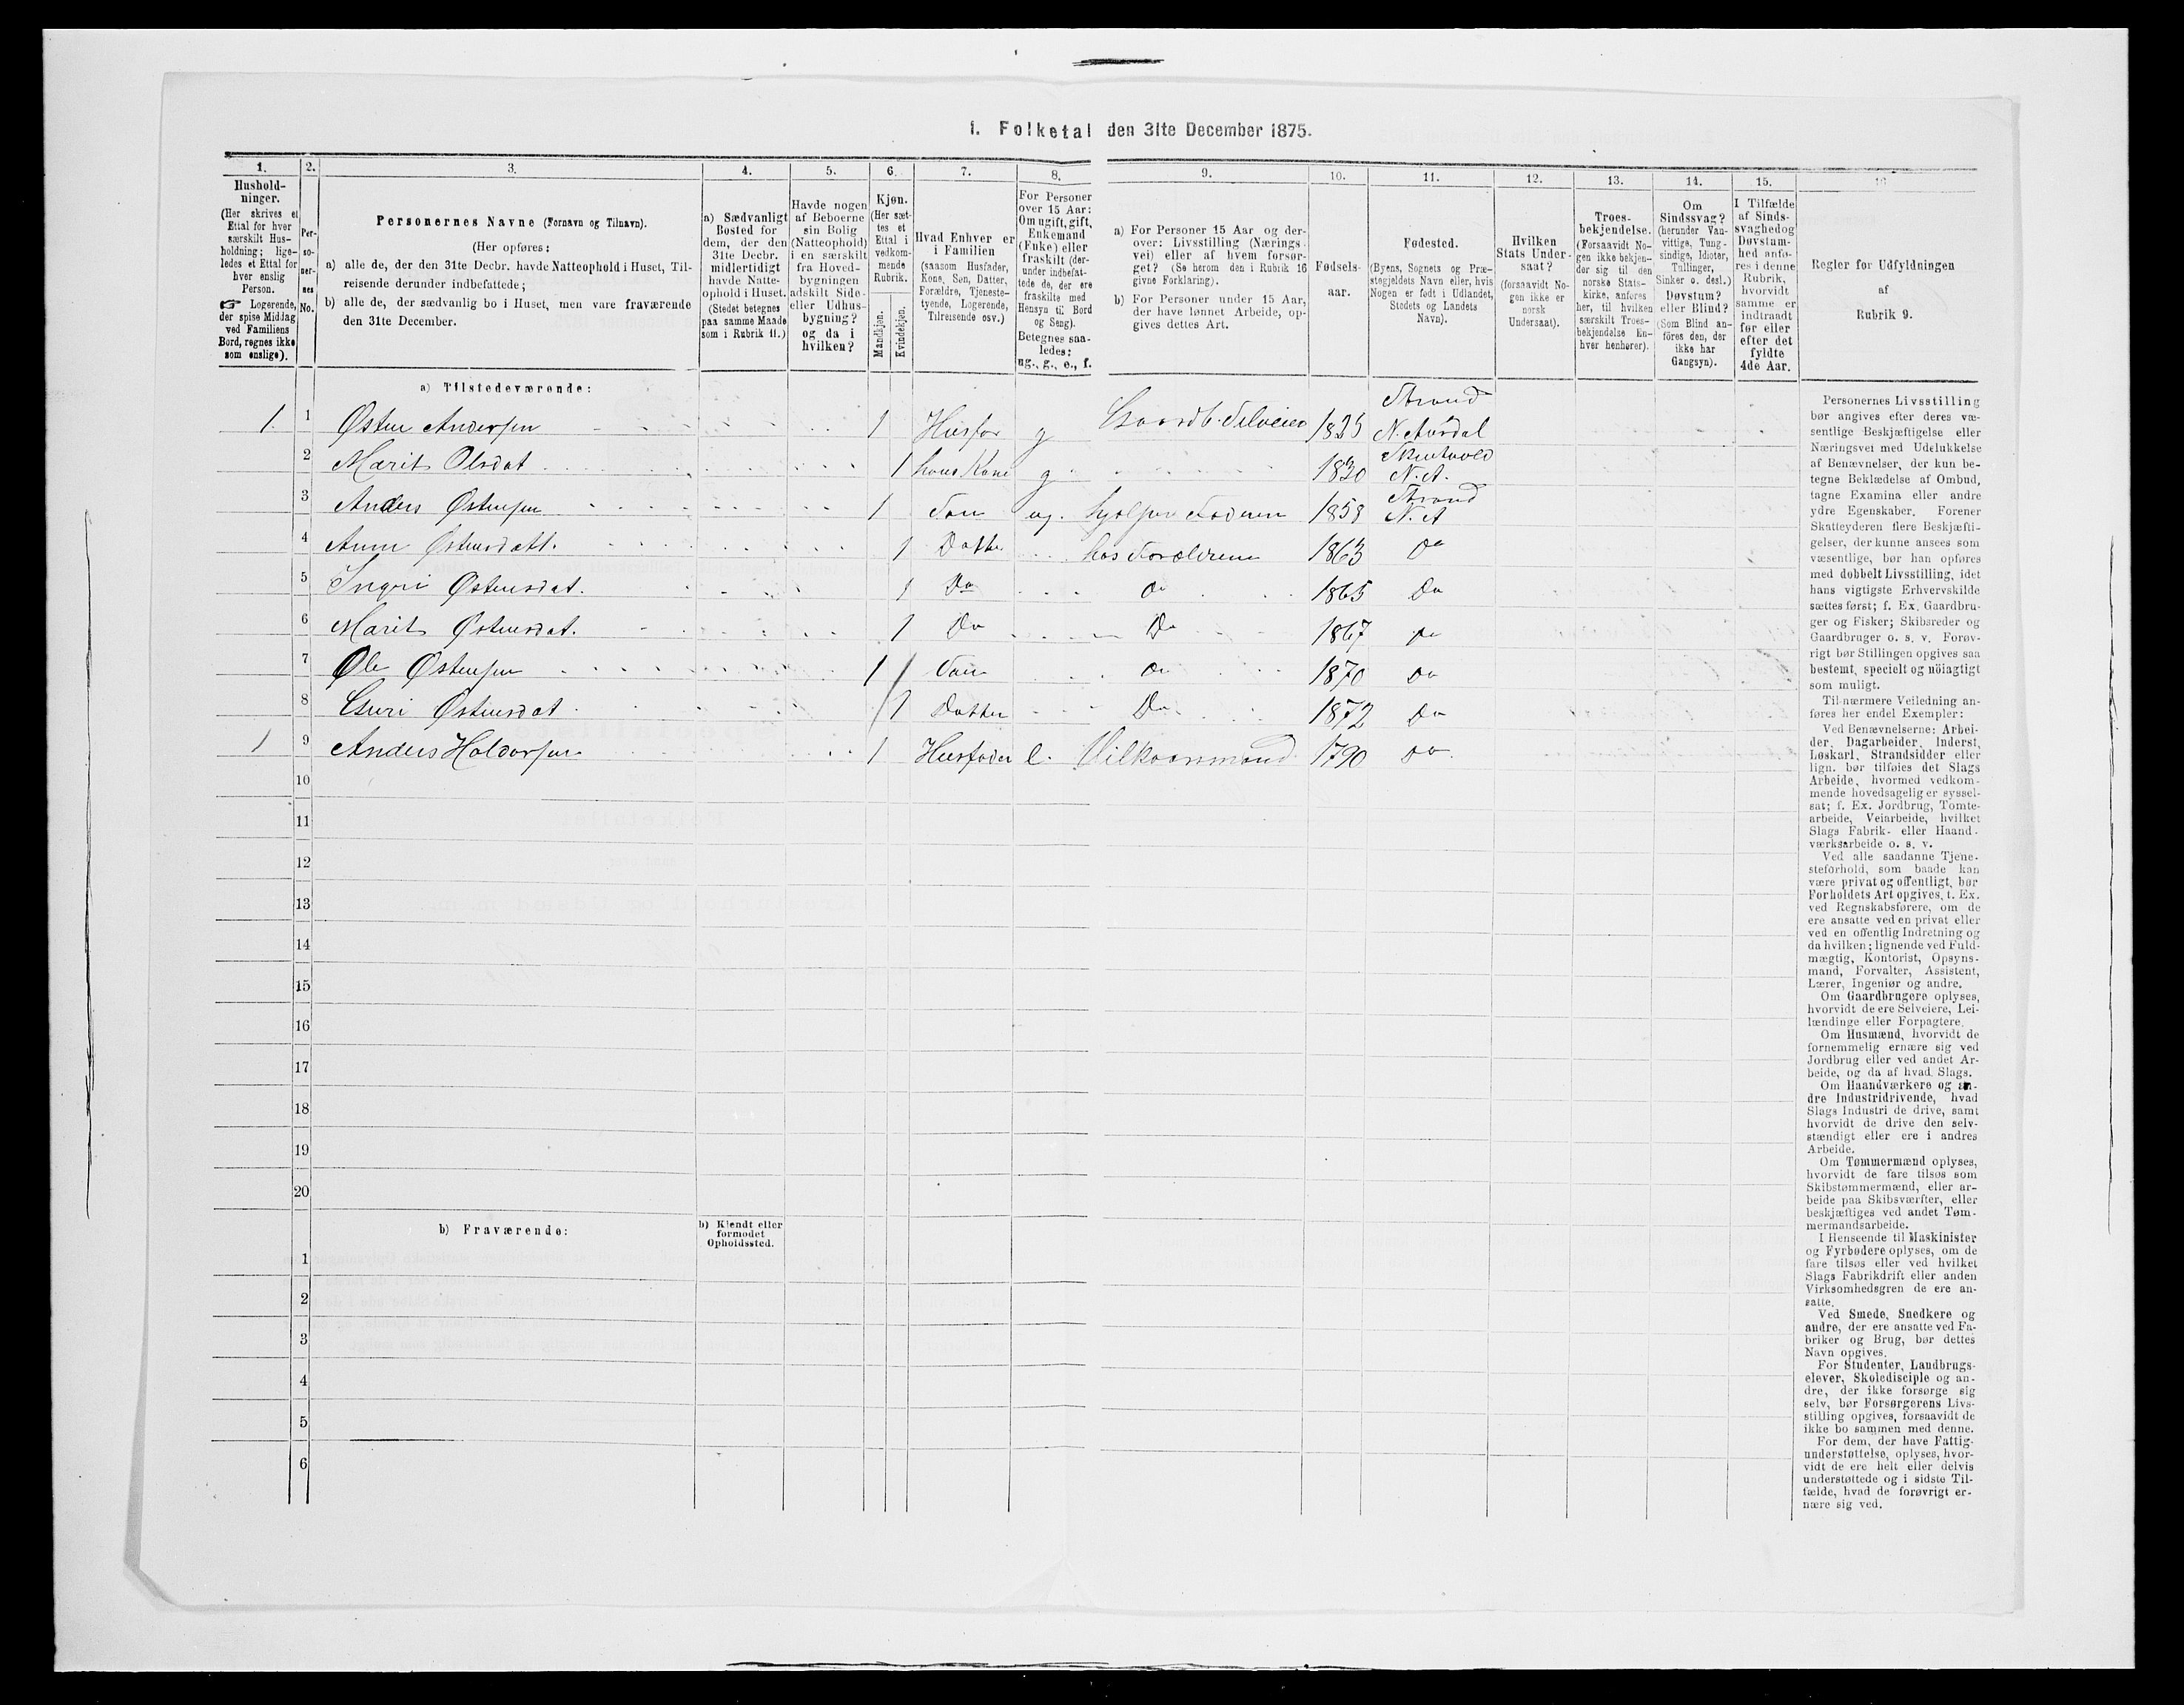 1. Folketal den 31te December 1875.
1. 2. 3. 4. 5. 6. 7. 8. 9. 10. 11. 12. 13. 14. 15. 16
Hushold-
ninger.
(Her skrives et
Ettal for hver
særskilt Hus-
holdning; lige-
ledes et Ettal for
hver enslig
Person.
☞ Logerende,
der spise Middag
ved Familiens
Bord, regnes ikke
som enslige).
Per-
so-
ner-
nes
No.
Personernes Navne (Fornavn og Tilnavn).
(Her opføres:
a) alle de, der den 31te Decbr. havde Natteophold i Huset, Til-
reisende derunder indbefattede;
b) alle de, der sædvanlig bo i Huset, men vare fraværende
den 31te December.
a) Sædvanligt
Bosted for
dem, der den
31te Decbr.
midlertidigt
havde Natte-
ophold i Huset.
(Stedet betegnes
paa samme Maade
som i Rubrik 11.)
Havde nogen
af Beboerne
sin Bolig
(Natteophold)
i en særskilt
fra Hoved-
bygningen
adskilt Side-
eller Udhus-
bygning?
og da i
hvilken?
Kjøn.
(Her sæt-
tes et
Ettal i
vedkom-
mende
Rubrik.
Mandkjøn.
Kvindekjøn.
Hvad Enhver er
i Familien
(saasom Husfader,
Kone, Søn, Datter,
Forældre, Tjeneste-
tyende, Logerende,
Tilreisende osv.)
For Personer
over 15 Aar:
Om ugift, gift,
Enkemand
(Enke) eller
fraskilt (der-
under indbefat-
tede de, der ere
fraskilte med
Hensyn til Bord
og Seng).
Betegnes saa-
ledes:
ug., g., e., f.
a) For Personer 15 Aar og der-
over: Livsstilling (Nærings-
vei) eller af hvem forsør-
get? (Se herom den i Rubrik 16
givne Forklaring).
b) For Personer under 15 Aar,
der have lønnet Arbeide, op-
gives dettes Art.
Fødsels-
aar.
Fødested.
(Byens, Sognets og Præ-
stegjeldets Navn eller, hvis
Nogen er født i Udlandet,
Stedets og Landets
Navn).
Hvilken
Stats Under-
saat?
(forsaavidt No-
gen ikke er
norsk
Undersaat).
Troes-
bekjendelse.
(Forsaavidt No-
gen ikke bekjen-
der sig til den
norske Stats-
kirke, anføres
her, til hvilken
særskilt Troes-
bekjendelse En-
hver henhører).
Om
Sindssvag?
(herunder Van-
vittige, Tung-
sindige, Idioter,
Tullinger,
Sinker o. desl.)
Døvstum?
eller Blind?
(Som Blind an-
føres den, der
ikke har
Gangsyn).
I Tilfælde
af Sinds-
svaghed og
Døvstum-
hed anfø-
res i denne
Rubrik,
hvorvidt
samme er
indtraadt
før eller
efter det
fyldte
4de Aar.
Regler for Udfyldningen
af
Rubrik 9.
a) Tilstedeværende:
1. 1 Østen Andersen 1 Husfar g Gaardb. Selveier 1825 Strand N. Aurdal
2 Marit Olsdat 1 hans Kone g 1830 N. A.
3 Anders Østensen 1 Søn ug. hjelper Faderen 1858 Strand N. A
4 Anne Østensdatt. 1 Datter hos Forældrene 1863 Do
5 Ingri Østensdat. 1 Do Do 1865 Do
6 Marit Østensdat. 1 Do Do 1867 Do
7 Ole Østensen 1 Søn Do 1870 Do
8 Guri Østensdat 1 Datter Do 1872 Do
1 9 Anders Haldorsen 1 Husfader e. Vilkaarsmand 1790 Do
10
11
12
13
14
15
16
17
18
19
20
b) Fraværende:
b) Kjendt eller
formodet
Opholdssted.
1
2
3
4
5
6
Personernes Livsstilling
bør angives efter deres væ-
sentlige Beskjæftigelse eller
Næringsvei med Udelukkelse
af Benævnelser, der kun be-
tegne Beklædelse af Ombud,
tagne Examina eller andre
ydre Egenskaber. Forener
Skatteyderen flere Beskjæfti-
gelser, der kunne ansees som
væsentlige, bør han opføres
med dobbelt Livsstilling, idet
hans vigtigste Erhvervskilde
sættes først; f. Ex. Gaardbru-
ger og Fisker; Skibsreder og
Gaardbruger o. s. v. Forøv-
rigt bør Stillingen opgives saa
bestemt, specielt og nöiagtigt
som muligt.
Til nærmere Veiledning an-
føres her endel Exempler:
Ved Benævnelserne: Arbei-
der, Dagarbeider, Inderst,
Løskarl, Strandsidder eller
lign. bør tilføies det Slags
Arbeide, hvormed vedkom-
mende hovedsagelig er syssel-
sat; f. Ex. Jordbrug, Tomte-
arbeide, Veiarbeide, hvilket
Slags Fabrik- eller Haand-
værksarbeide o. s. v.
Ved alle saadanne Tjene-
steforhold, som baade kan
være privat og offentligt, bør
Forholdets Art opgives, t. Ex.
ved Regnskabsførere, om de
ere ansatte ved en privat eller
ved en offentlig Indretning og
da hvilken; lignende ved Fuld-
mægtig, Kontorist, Opsyns-
mand, Forvalter, Assistent,
Lærer, Ingeniør og andre.
Om Gaardbrugere oplyses,
hvorvidt de ere Selveiere, Lei-
lændinge eller Forpagtere.
Om Husmænd, hvorvidt de
fornemmelig ernære sig ved
Jordbrug eller ved andet Ar-
beide, og da af hvad Slags.
Om Haandværkere og an-
dre Industridrivende, hvad
Slags Industri de drive, samt
hvorvidt de drive den selv-
stændigt eller ere i andres
Arbeide.
Om Tømmermænd oplyses,
hvorvidt de fare tilsøs som
Skibstømmermænd, eller ar-
beide paa Skibsværfter, eller
beskjæftiges ved andet Tøm-
mermandsarbeide.
I Henseende til Maskinister
og Fyrbødere oplyses, om de
fare tilsøs eller ved hvilket
Slags Fabrikdrift eller anden
Virksomhedsgren de ere an-
satte.
Ved Smede, Snedkere og
andre, der ere ansatte ved Fa-
briker og Brug, bør dettes
Navn opgives.
For Studenter, Landbrugs-
elever, Skoledisciple og an-
dre, der ikke forsørge sig
selv, bør Forsørgerens Livs-
stilling opgives, forsaavidt de
ikke bo sammen med denne.
For dem, der have Fattig-
understøttelse, oplyses, hvor-
vidt de ere helt eller delvis
understøttede og i sidste Til-
fælde, hvad de forøvrigt er-
nære sig ved.